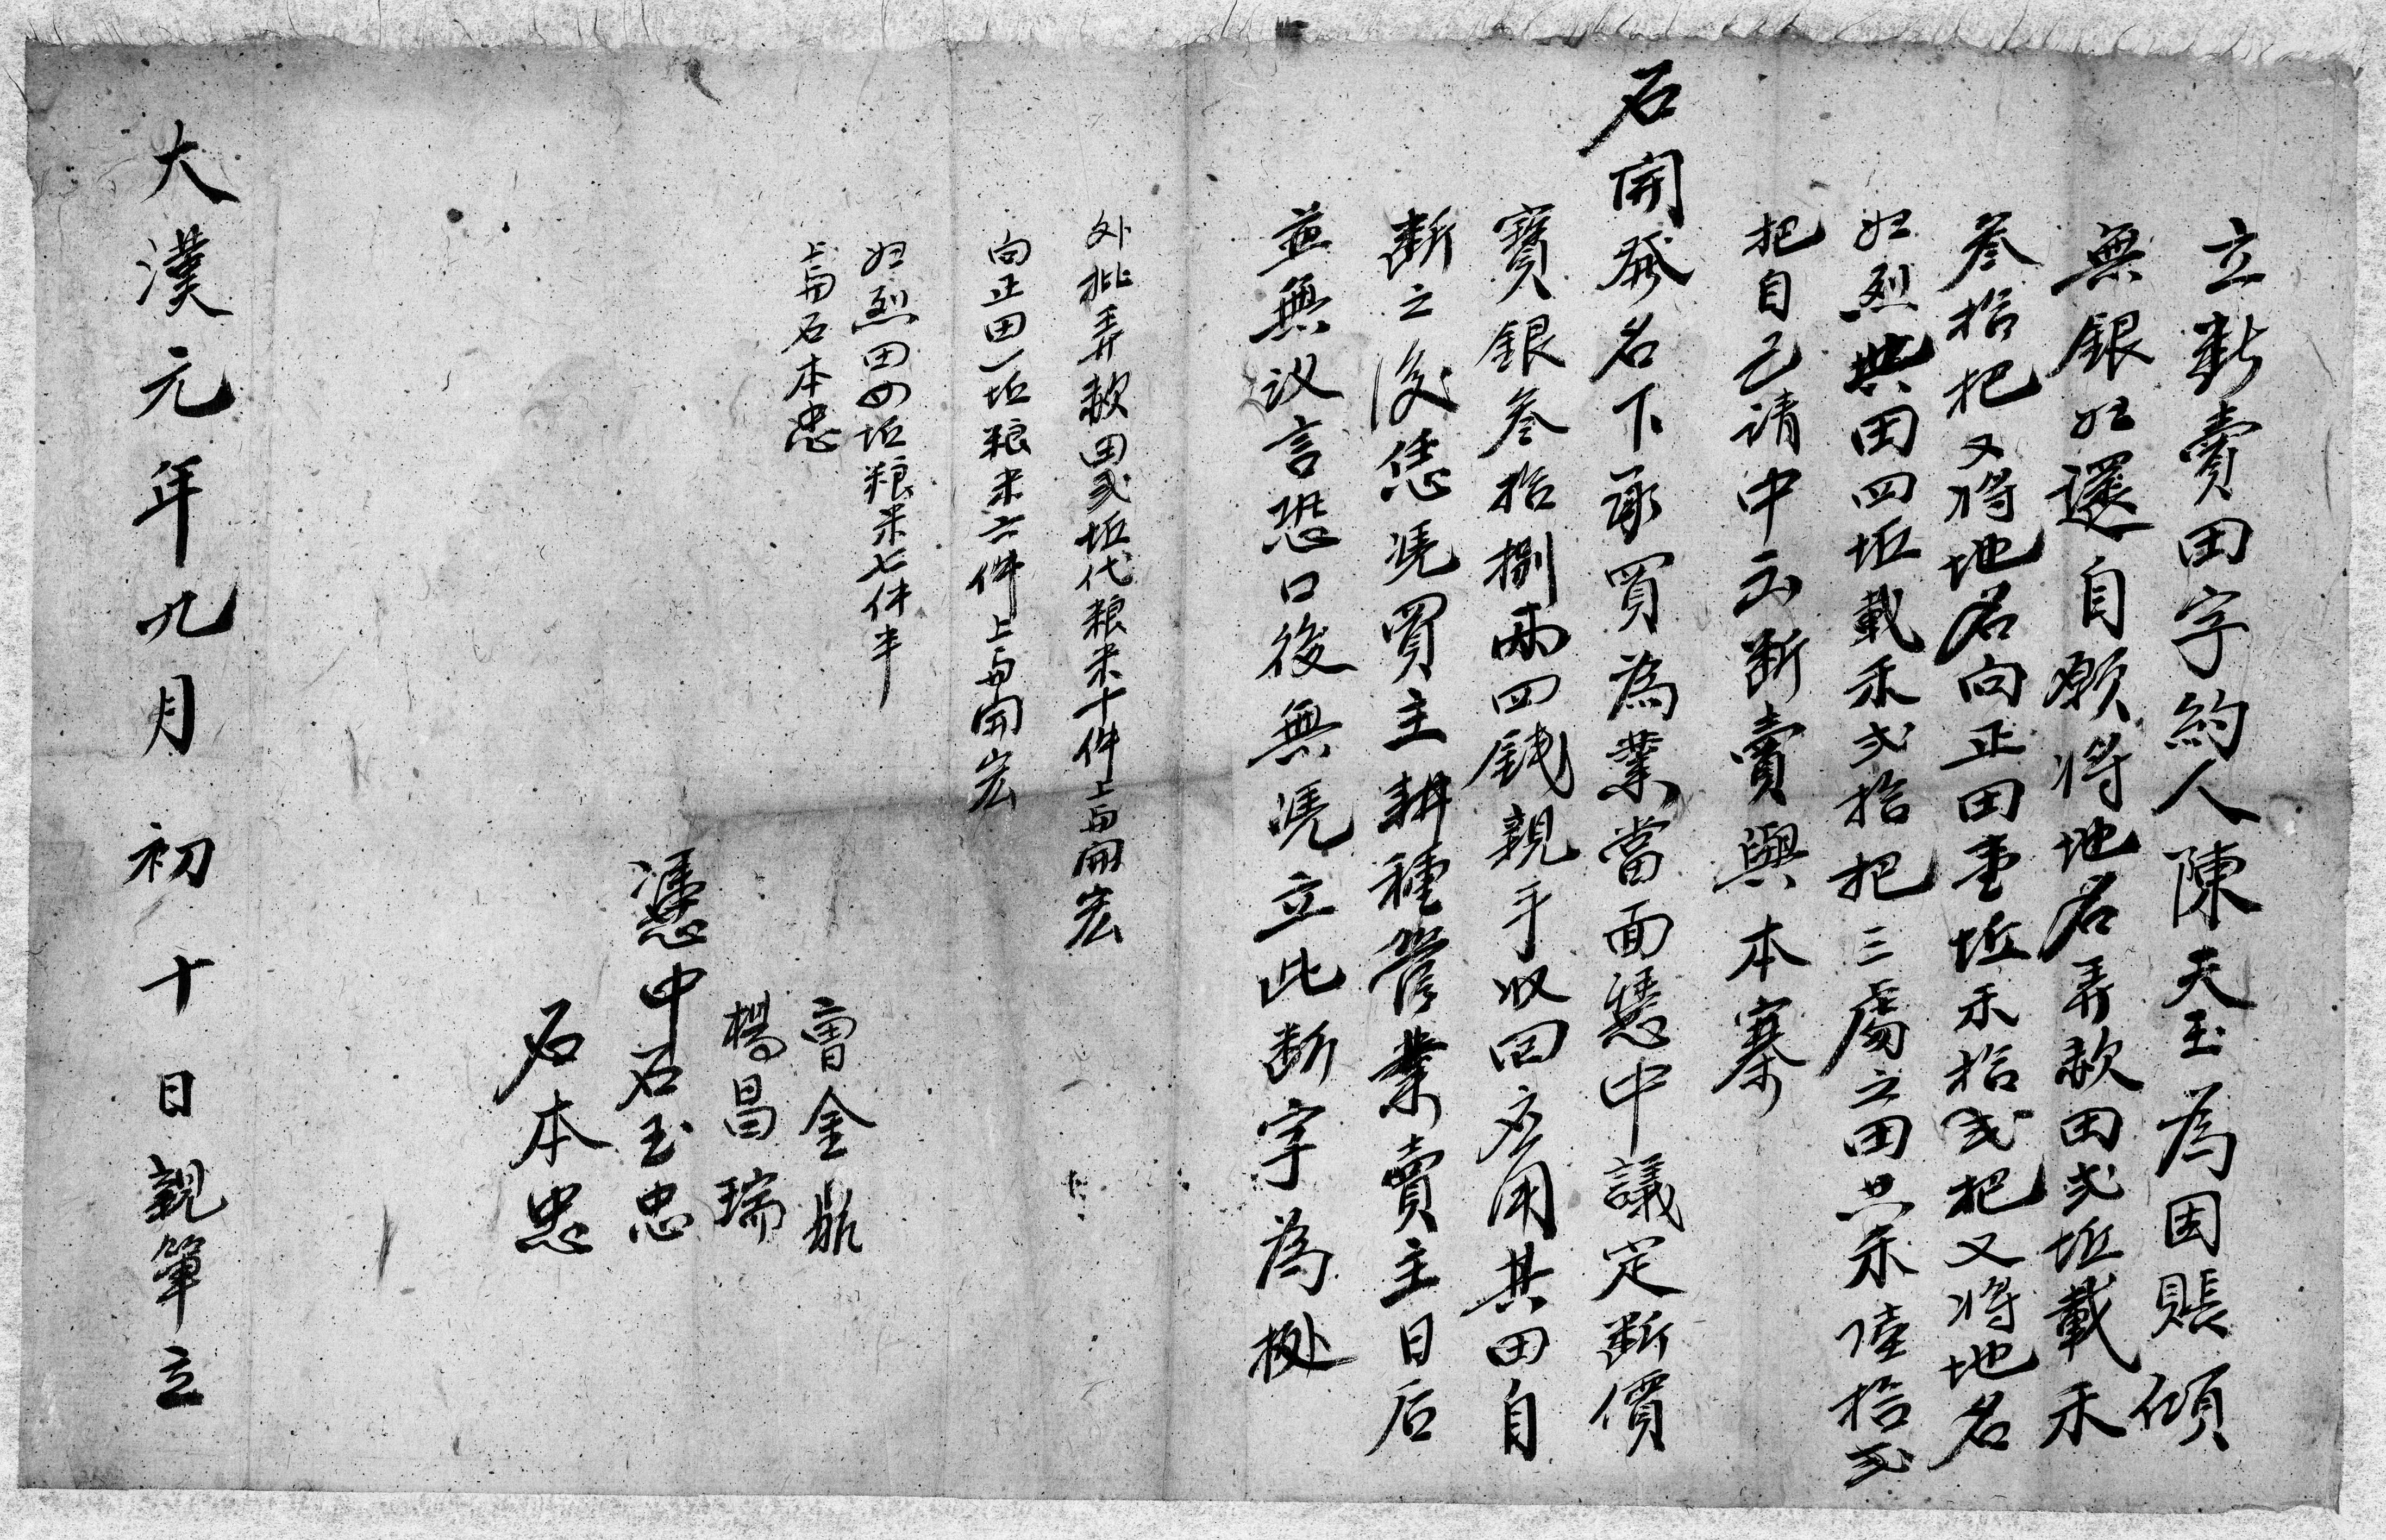 立斷賣田字約人陳天玉為因賬傾
無銀归還自願将地名弄欵田弍坵載禾
叁拾把又将地名向正田壹坵禾拾弍把又将地名
归烈典田四坵載禾弍拾把三處之田共禾陸拾弍
把自己请中出断賣與本寨
石開發名下承買為業當面憑中議定断價
寳銀叁拾捌兩四錢親手収回应用其田自
断之後恁凴買主耕種管業賣主日后
並無议言恐口後無凴立此断字為㨿
外批弄欵田弍坵代粮米十件上与開宏
向正田一坵粮米六件上与開宏
归烈田四坵粮米七件半
上与石本忠
曾金
楊昌瑞
憑中石玉忠
石本忠
大漢元年九月初十日親筆立